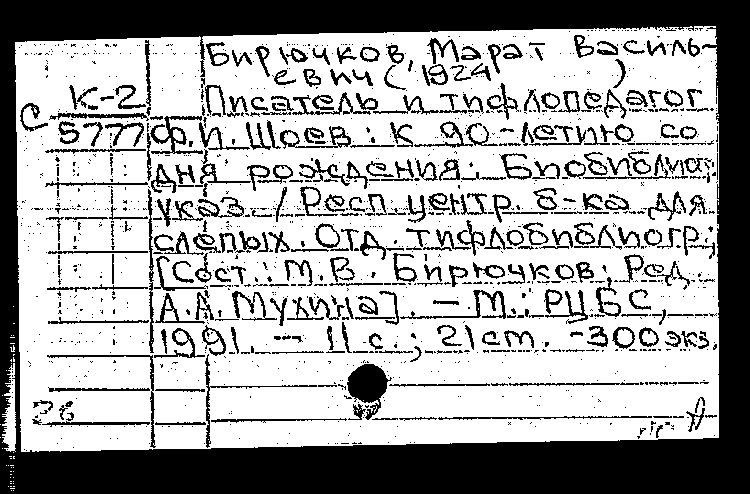 Бирючков, Марат Василь-
евич (1924 )
К-2 Писатель и тифлопедагог
С 5777 Ф.И. Шоев : К 90-летию со
дня рождения : Биобиблиогр.
указ. / Респ. центр. б-ка для
слепых. Отд. тифлобиблиогр.;
[Сост.: М.В. Бирючков; Ред.
А.А. Мухина]. — М.: РЦБС,
1991. — 11 с.; 21 см. -300 экз.
26